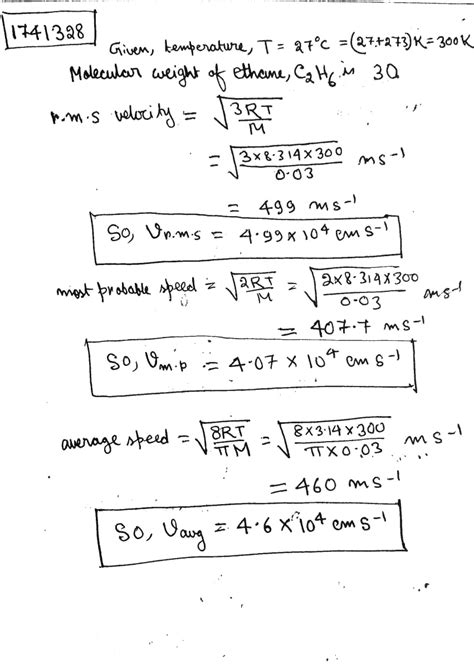 1741328
Given, temperature, T = 27°C = (27+273)K = 300K
Molecular weight of ethane, C2H6 is 30
r.m.s velocity = √(3RT/M)
= √(3×8.314×300/0.03) ms⁻¹
= 499 ms⁻¹
So, Vr.m.s = 4.99×10⁴ cm s⁻¹
most probable speed = √(2RT/M) = √(2×8.314×300/0.03) ms⁻¹
= 407.7 ms⁻¹
So, Vm.p = 4.07 × 10⁴ cm s⁻¹
average speed = √(8RT/πM) = √(8×3.14×300/π×0.03) ms⁻¹
= 460 ms⁻¹
So, Vavg = 4.6 × 10⁴ cm s⁻¹